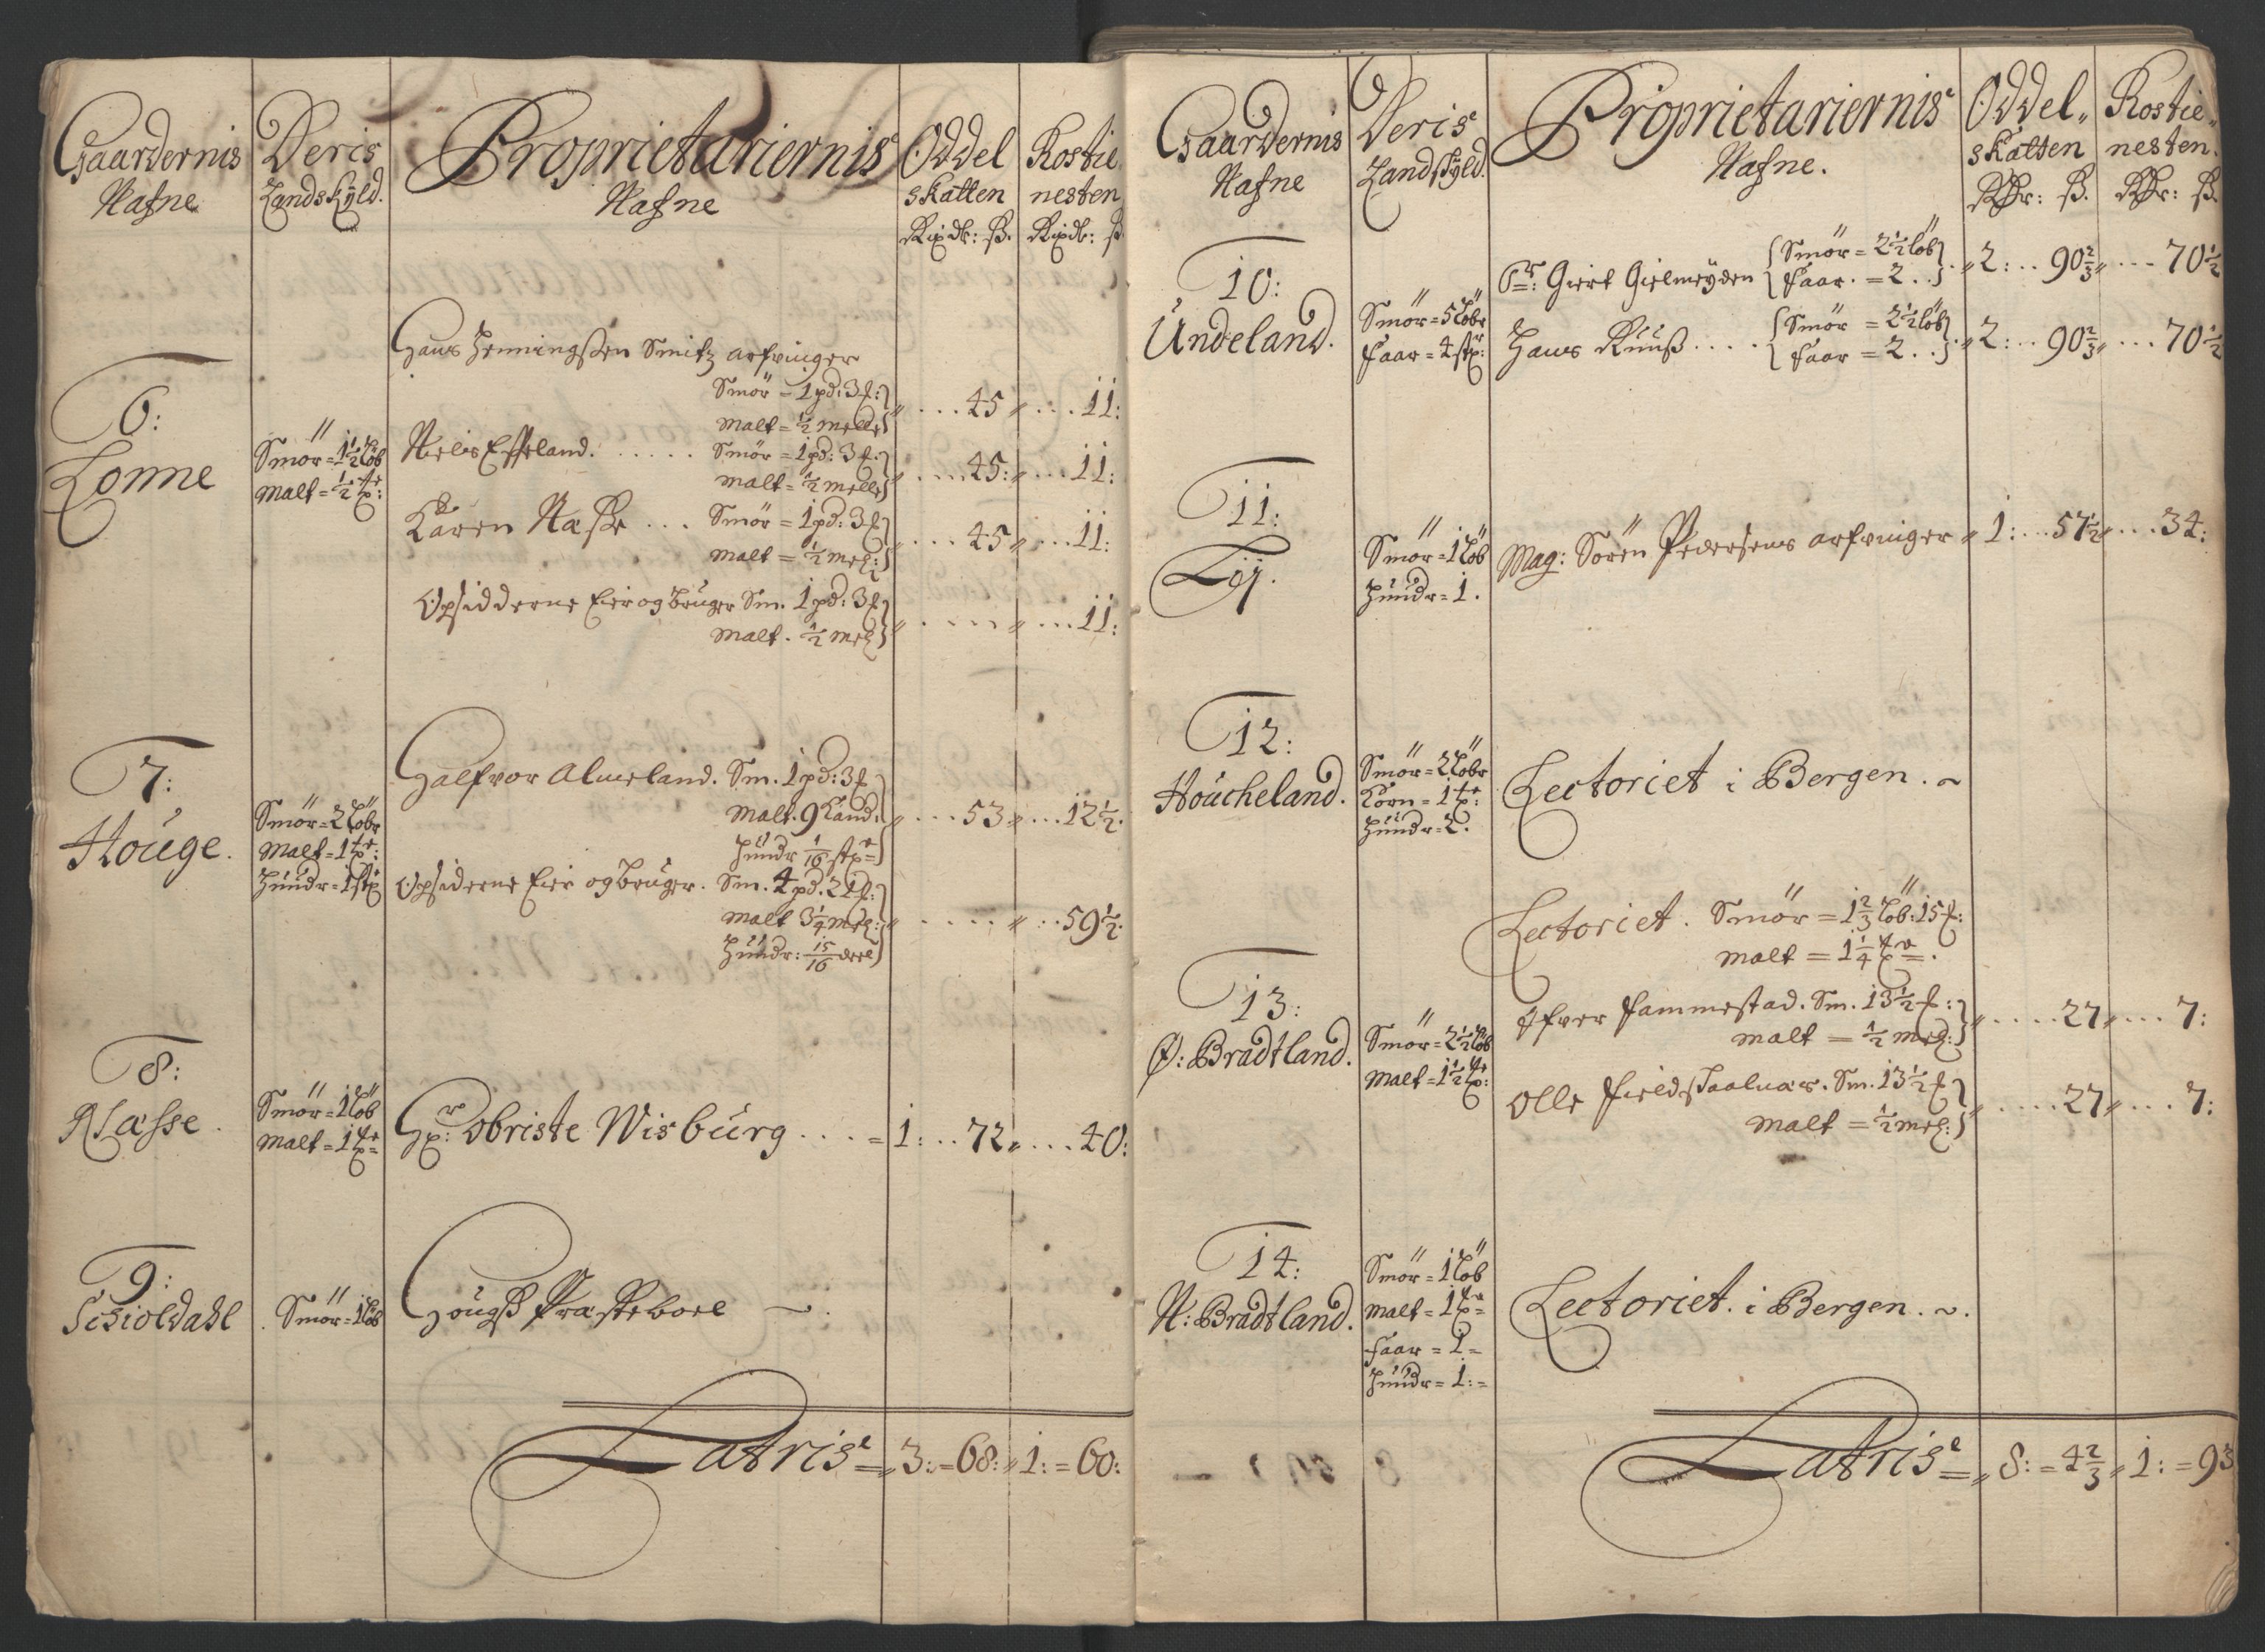 Gaardernis
Nafne
Deris
Landskyld.
Proprietariernis
Nafne
Oddel
skatten
Rixdr: ß.
Rostie
nesten
Rixdr: ß
6:
Lonne
Smör = 1½ löb
Malt = ½ tr:
Hans Henningsen Smitz arfvinger
Smör = 1 pd: 3 f:
Malt = ½ melle
... 45 ... 11:
Nielis Effeland. ..... Smör = 1 pd: 3 f:
Malt = ½ melle
... 45: ... 11:
Karen Næss ... Smör = 1 pd: 3 f
Malt = ½ mel:
... 45 ... 11:
Opsidderne Eier og bruger Sm. 1 pd: 3 f
Malt. ½ mel
.... ... 11:
7:
Houge.
Smör = 2 löbr
Malt = 1 tr:
Huudr = 1 stk
Halfvor Almeland. Sm. 1 pd: 3 f
Malt. 9 Kand:
Huudr 1/16 stkr
... 53 ... 12½.
Opsiderne Eier og bruger. Sm. 4 pd. 21 f:
Malt 3¼ mel:
Huudr: 15/16 deel
..... .. 59½.
8:
Næsse.
Smör = 1 löb
Malt = 1 tr =
Hr: obriste Wisburg .... = 1: .. 72 .... 40:
9:
Schioldahl
Smör = 1 löb
Hougß Præsteboel ~.
Lateris = 3: = 68: 1: = 60:
Gaardernis
Nafne
Deris
Landskyld.
Proprietariernis
Nafne.
Oddel
skatten
Rdr: ß.
Rostie
nesten.
Rdr: ß.
10:
Undeland.
Smör = 5 löbr
Faar = 4 stkr:
Sr: Giert Gielmeyden { Smör = 2½ löb
Faar. = 2 ..}
2: .. 90⅔ ... 70½
Hans Ruuß .... { Smör = 2½ löb
Faar = 2 ..}
2: .. 90⅔ ... 70½
11:
Lij.
Smör = 1 löb
Huudr = 1.
Mag: Sören Pedersens arfvinger 1: .. 57½ ... 34:
12:
Houcheland.
Smör = 2 löbr
Korn = 1 tr:
Huudr = 2.
Lectoriet i Bergen. ~
13:
Ø: Bradtland.
Smör = 2½ löb
Malt = 1½ tr:
Lectoriet. Smör = 1⅔ löb: 15 f:
Malt = 1¼ tr =.
Ifver Fammestad. Sm. 13½ f:
Malt = ½ mel:
..... 27 .... 7:
Olle Fieldskaalnæs. Sm. 13½ f
Malt = ½ mel:
..... 27 .... 7:
14:
N: Bradtland.
Smör = 1 löb
Malt = 1 tr =
Faar = 1 =
Huudr = 1: =
Lectoriet. i Bergen. ~.
Lateris = 8: = 4⅔ 1: = 93